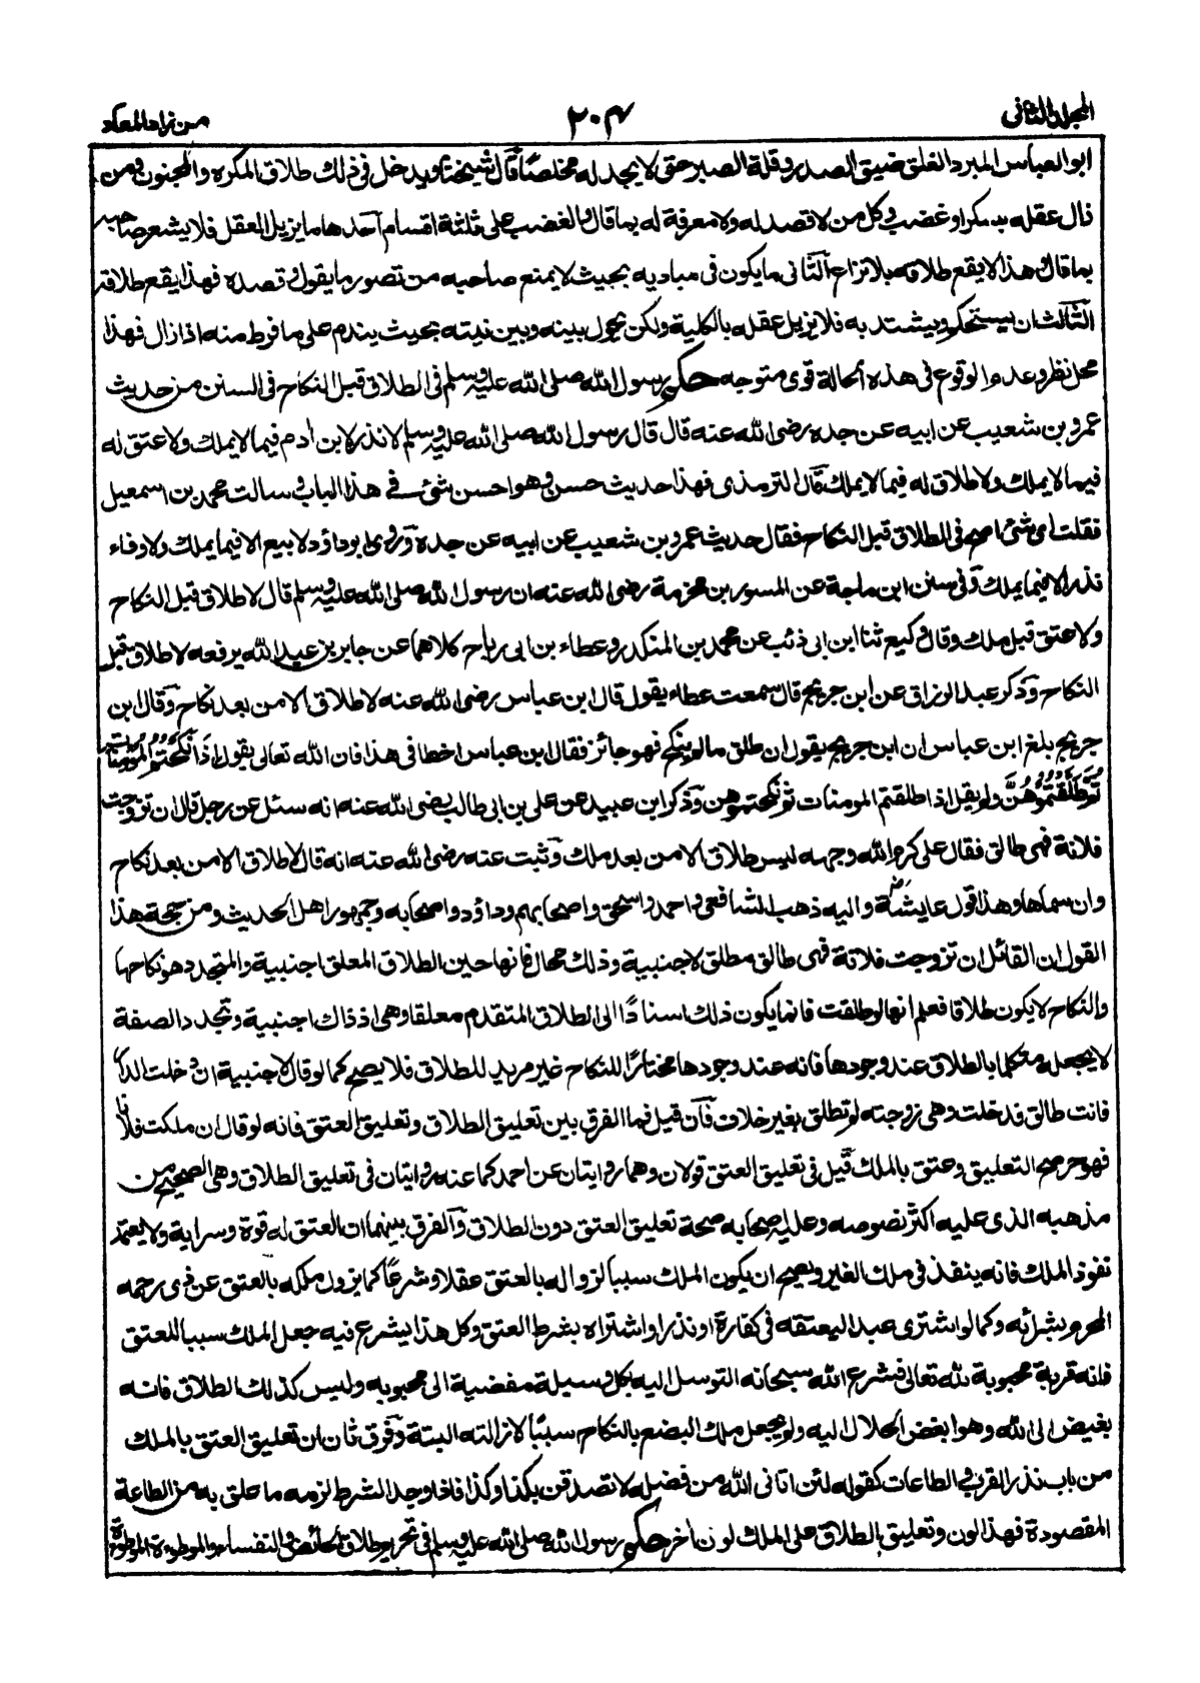 المجلد الثانى
٢٠٤
من زاد المعاد
ابو العباس المبرد الغلق ضيق الصدر وقلة الصبر حتى لا يجد له مخلصا قال شيخنا ويدخل فى ذلك طلاق المكره والمجنون ومن
زال عقله بسكر او غضب وكل من لا قصد له ولا معرفة له بما قال والغضب على ثلثة اقسام احدها ما يزيل العقل فلا يشعر صاحبه
بما قال هذا لا يقع طلاقه بلا نزاع الثانى ما يكون فى مباديه بحيث لا يمنع صاحبه من تصور ما يقول وقصده فهذا يقع طلاقه
الثالث ان يستحكم ويشتد به فلا يزيل عقله بالكلية ولكن يحول بينه وبين نيته بحيث يندم على ما فرط منه اذا زال فهذا
محل نظر وعدم الوقوع فى هذه الحالة قوى متوجه حكم رسول الله صلى الله عليه وسلم فى الطلاق قبل النكاح فى السنن من حديث
عمرو بن شعيب عن ابيه عن جده رضى الله عنه قال قال رسول الله صلى الله عليه وسلم لا نذر لابن ادم فيما لا يملك ولا عتق له
فيما لا يملك ولا طلاق له فيما لا يملك قال الترمذى فهذا حديث حسن وهو احسن شئ فى هذا الباب وسالت محمد بن اسمعيل
فقلت اى شئ اصح فى الطلاق قبل النكاح فقال حديث عمرو بن شعيب عن ابيه عن جده وروى ابو داؤد لا بيع الا فيما يملك ولا وفاء
نذر الا فيما يملك وفى سنن ابن ماجة عن المسور بن مخرمة رضى الله عنه ان رسول الله صلى الله عليه وسلم قال لا طلاق قبل النكاح
ولا عتق قبل ملك وقال وكيع ثنا ابن ابى ذئب عن محمد بن المنكدر وعطاء بن ابى رباح كلاهما عن جابر بن عبد الله يرفعه لا طلاق قبل
النكاح وذكر عبد الرزاق عن ابن جريج قال سمعت عطاء يقول قال ابن عباس رضى الله عنه لا طلاق الا من بعد نكاح وقال ابن
جريج بلغ ابن عباس ان ابن جريج يقول ان طلق ما لم ينكح فهو جائز فقال ابن عباس اخطا فى هذا فان الله تعالى يقول اِذَا نَكَحْتُمُ الْمُؤْمِنَاتِ
ثُمَّ طَلَّقْتُمُوْهُنَّ ولم يقل اذا طلقتم المومنات ثم نكحتموهن وذكر ابن عبيد عن على بن ابى طالب رضى الله عنه انه سئل عن رجل قال ان تزوجت
فلانة فهى طالق فقال على كرم الله وجهه ليس طلاق الا من بعد ملك وثبت عنه رضى الله عنه انه قال لا طلاق الا من بعد نكاح
وان سماها وهذا قول عايشة واليه ذهب الشافعى واحمد واسحق واصحابهم وداؤد واصحابه وجمهور اهل الحديث ومن حجة هذا
القول ان القائل ان تزوجت فلانة فهى طالق مطلق لاجنبية وذلك محال فانها حين الطلاق المعلق اجنبية والمتجدد هو نكاحها
والنكاح لا يكون طلاقا فعلم انها لو طلقت فانما يكون ذلك اسنادًا الى الطلاق المتقدم معلقا وهى اذ ذاك اجنبية وتجدد الصفة
لا يجعله متكلما بالطلاق عند وجودها فانه عند وجودها مختارًا للنكاح غير مريد للطلاق فلا يصح كما لو قال لاجنبية ان دخلت الدار
فانت طالق فدخلت وهى زوجته لم تطلق بغير خلاف فان قيل فما الفرق بين تعليق الطلاق وتعليق العتق فانه لو قال ان ملكت فلانا
فهو حر صح التعليق وعتق بالملك قيل فى تعليق العتق قولان وهما روايتان عن احمد كما عنه روايتان فى تعليق الطلاق وهى الصحيح من
مذهبه الذى عليه اكثر نصوصه وعليه اصحابه صحة تعليق العتق دون الطلاق والفرق بينهما ان العتق له قوة وسراية ولا يعتمد
نفوذ الملك فانه ينفذ فى ملك الغير ويصح ان يكون الملك سببا لزواله بالعتق عقلا وشرعًا كما يزول ملكه بالعتق عن ذى رحمه
المحرم بشرائه وكما لو اشترى عبدا ليعتقه فى كفارة او نذر او اشتراه بشرط العتق وكل هذا يشرع فيه جعل الملك سببا للعتق
فانه قربة محبوبة لله تعالى فشرع الله سبحانه التوسل اليه بكل وسيلة مفضية الى محبوبه وليس كذلك الطلاق فانه
بغيض الى الله وهو ابغض الحلال اليه ولم يجعل ملك البضع بالنكاح سببًا لازالته البتة وفرق ثان ان تعليق العتق بالملك
من باب نذر القرب والطاعات كقوله لئن اتانى الله من فضله لاتصدقن بكذا وكذا فاذا وجد الشرط لزمه ما علق به من الطاعة
المقصودة فهذا لون وتعليق الطلاق على الملك لون اخر حكم رسول الله صلى الله عليه وسلم فى تحريم طلاق الحائض والنفساء والموطوءة